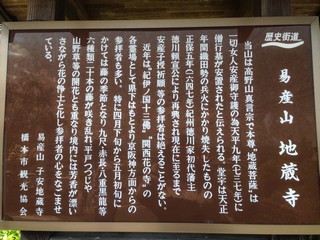 歴史街道
易産山 地蔵寺
当山は高野山真言宗で本尊〝地蔵菩薩〟は
一切女人安産御守護の為天平九年(七三七年)に
僧行基が安置されたと伝えられる。堂宇は天正
年間織田勢の兵火にかかり焼失したものの
正保五年(一六四七年)紀州徳川家初代藩主
徳川頼宣公により再興され現在に至るまで
安産子授祈願等の参拝者は絶えることがない。
近年は〝紀伊ノ国十三佛〟〝関西花の寺〟の
各霊場として県下はもとより京阪神方面からの
参拝者も多い。特に四月下旬から五月初旬に
かけては藤の季節となり九尺、赤長、八重黒龍等
六種類二十本の藤が咲き乱れ平戸つつじや
山野草等の開花とも重なり境内には芳香が漂い
さながら花の浄土と化し参拝者の心をなごませ
ている。
易産山 子安地蔵寺
橋本市観光協会